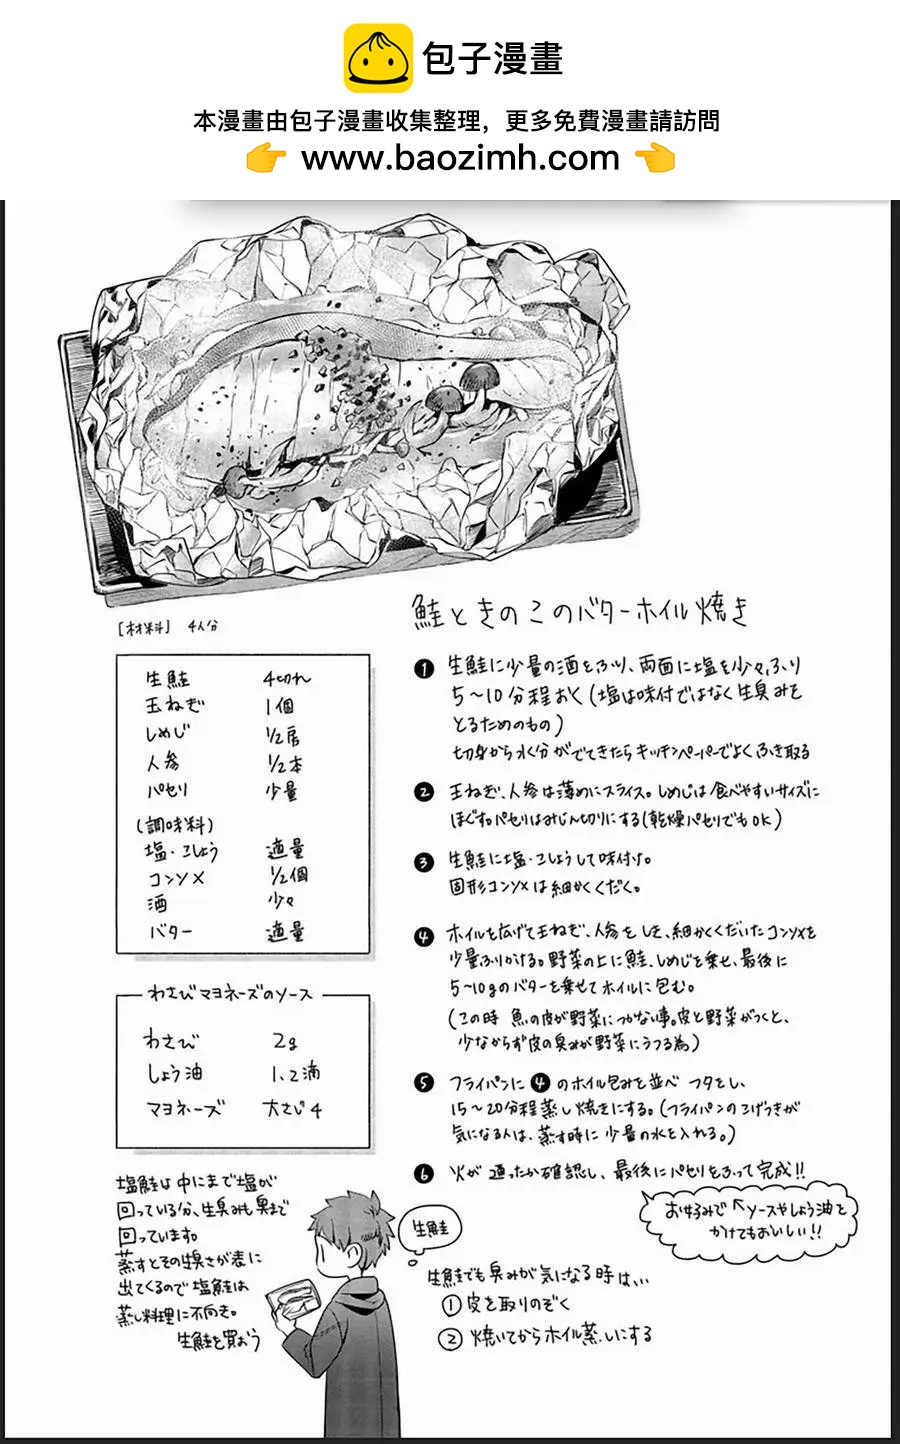 包子漫畫
本漫畫由包子漫畫收集整理，更多免費漫畫請訪問
👉 www.baozimh.com 👈
鮭ときのこのバターホイル焼き
[材料] 4人分
生鮭 4切れ
玉ねぎ 1個
しめじ 1/2房
人参 1/2本
パセリ 少量
(調味料)
塩・こしょう 適量
コンソメ 1/2個
酒 少々
バター 適量
わさびマヨネーズのソース
わさび 2g
しょう油 1、2滴
マヨネーズ 大さじ4
❶ 生鮭に少量の酒をふり、両面に塩を少々ふり
5〜10分程おく(塩は味付ではなく生臭みを
とるためのもの)
切身から水分がでてきたらキッチンペーパーでよくふき取る
❷ 玉ねぎ、人参は薄めにスライス。しめじは食べやすいサイズに
ほぐす。パセリはみじん切りにする(乾燥パセリでもOK)
❸ 生鮭に塩・こしょうして味付け。
固形コンソメは細かくくだく。
❹ ホイルを広げて玉ねぎ、人参をしき、細かくくだいたコンソメを
少量ふりかける。野菜の上に鮭、しめじを乗せ、最後に
5〜10gのバターを乗せてホイルに包む。
(この時 魚の皮が野菜につかない事。皮と野菜がつくと、
少なからず皮の臭みが野菜にうつる為)
❺ フライパンに❹のホイル包みを並べ フタをし、
15〜20分程蒸し焼きにする。(フライパンのこげつきが
気になる人は、蒸す時に少量の水を入れる。)
❻ 火が通ったか確認し、最後にパセリをふって完成!!
お好みで↖ソースやしょう油を
かけてもおいしい!!
塩鮭は中にまで塩が
回っている分、生臭みも奥まで
回っています。
蒸すとその生臭さが表に
出てくるので塩鮭は
蒸し料理に不向き。
生鮭を買おう
生鮭
生鮭でも臭みが気になる時は、、、
① 皮を取りのぞく
② 焼いてからホイル蒸しにする